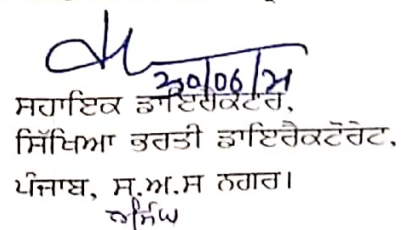 30/06/21
ਸਹਾਇਕ ਡਾਇਰੈਕਟਰ,
ਸਿੱਖਿਆ ਭਰਤੀ ਡਾਇਰੈਕਟੋਰੇਟ,
ਪੰਜਾਬ, ਸ.ਅ.ਸ ਨਗਰ।